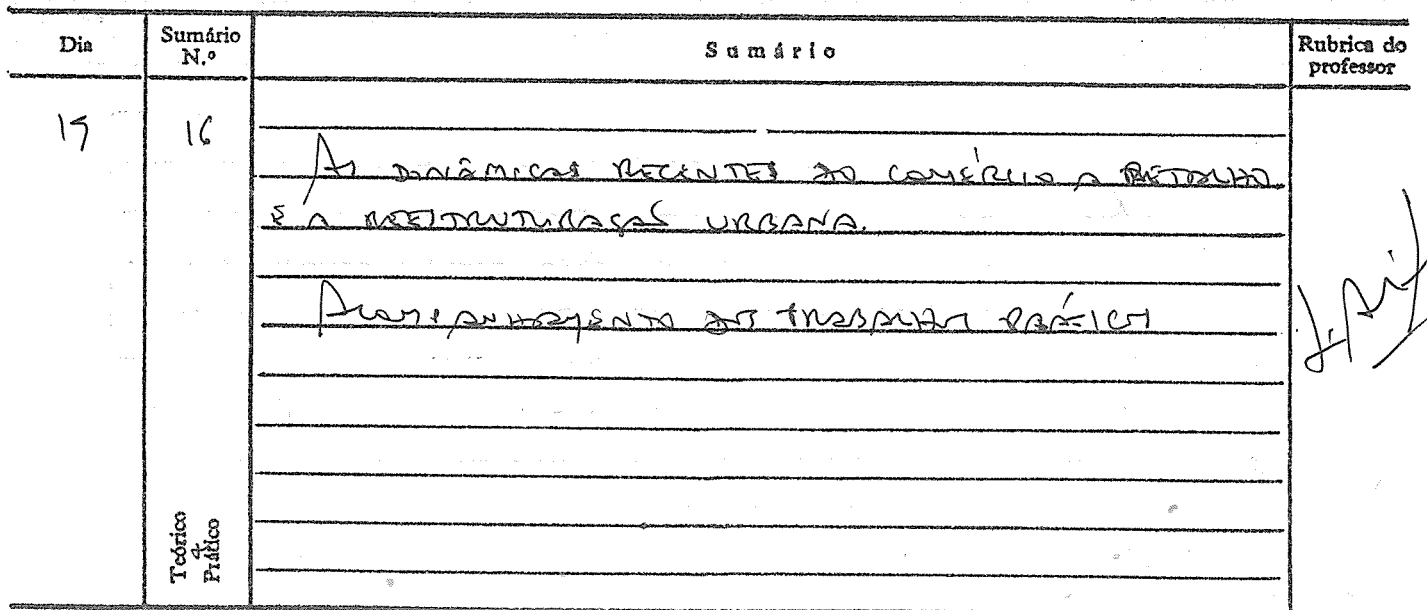 Dia
Sumário N.º
Sumário
Rubrica do professor
15
16
As dinâmicas recentes do comércio a retalho
e a reestruturação urbana.
Acompanhamento dos trabalhos práticos
Teórico e Prático